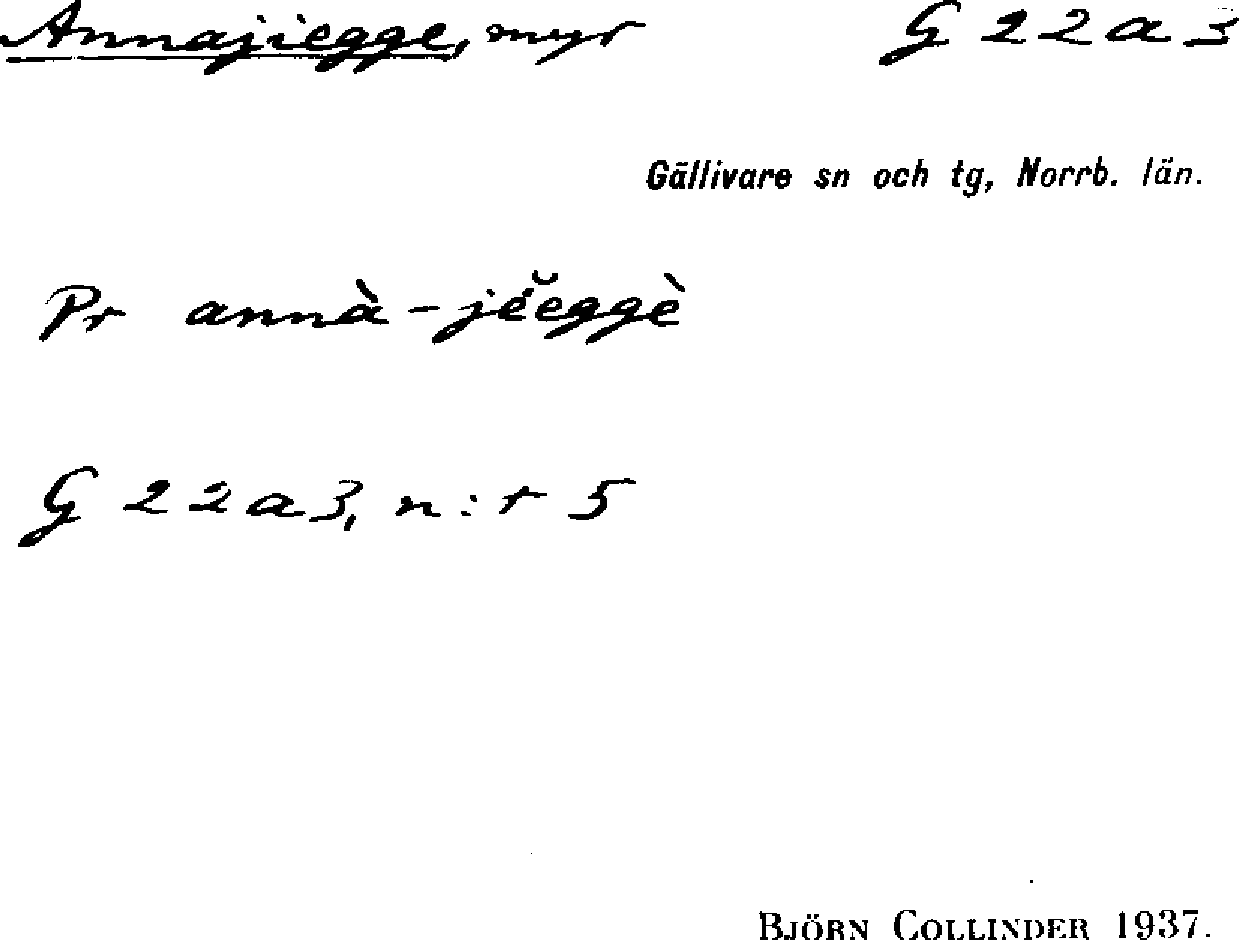 Annajiegge, myr G 22 a 3
Gällivare sn och tg, Norrb. län.
Pr annà-jĕeggè
G 22 a 3, n:r 5
BJÖRN COLLINDER 1937.